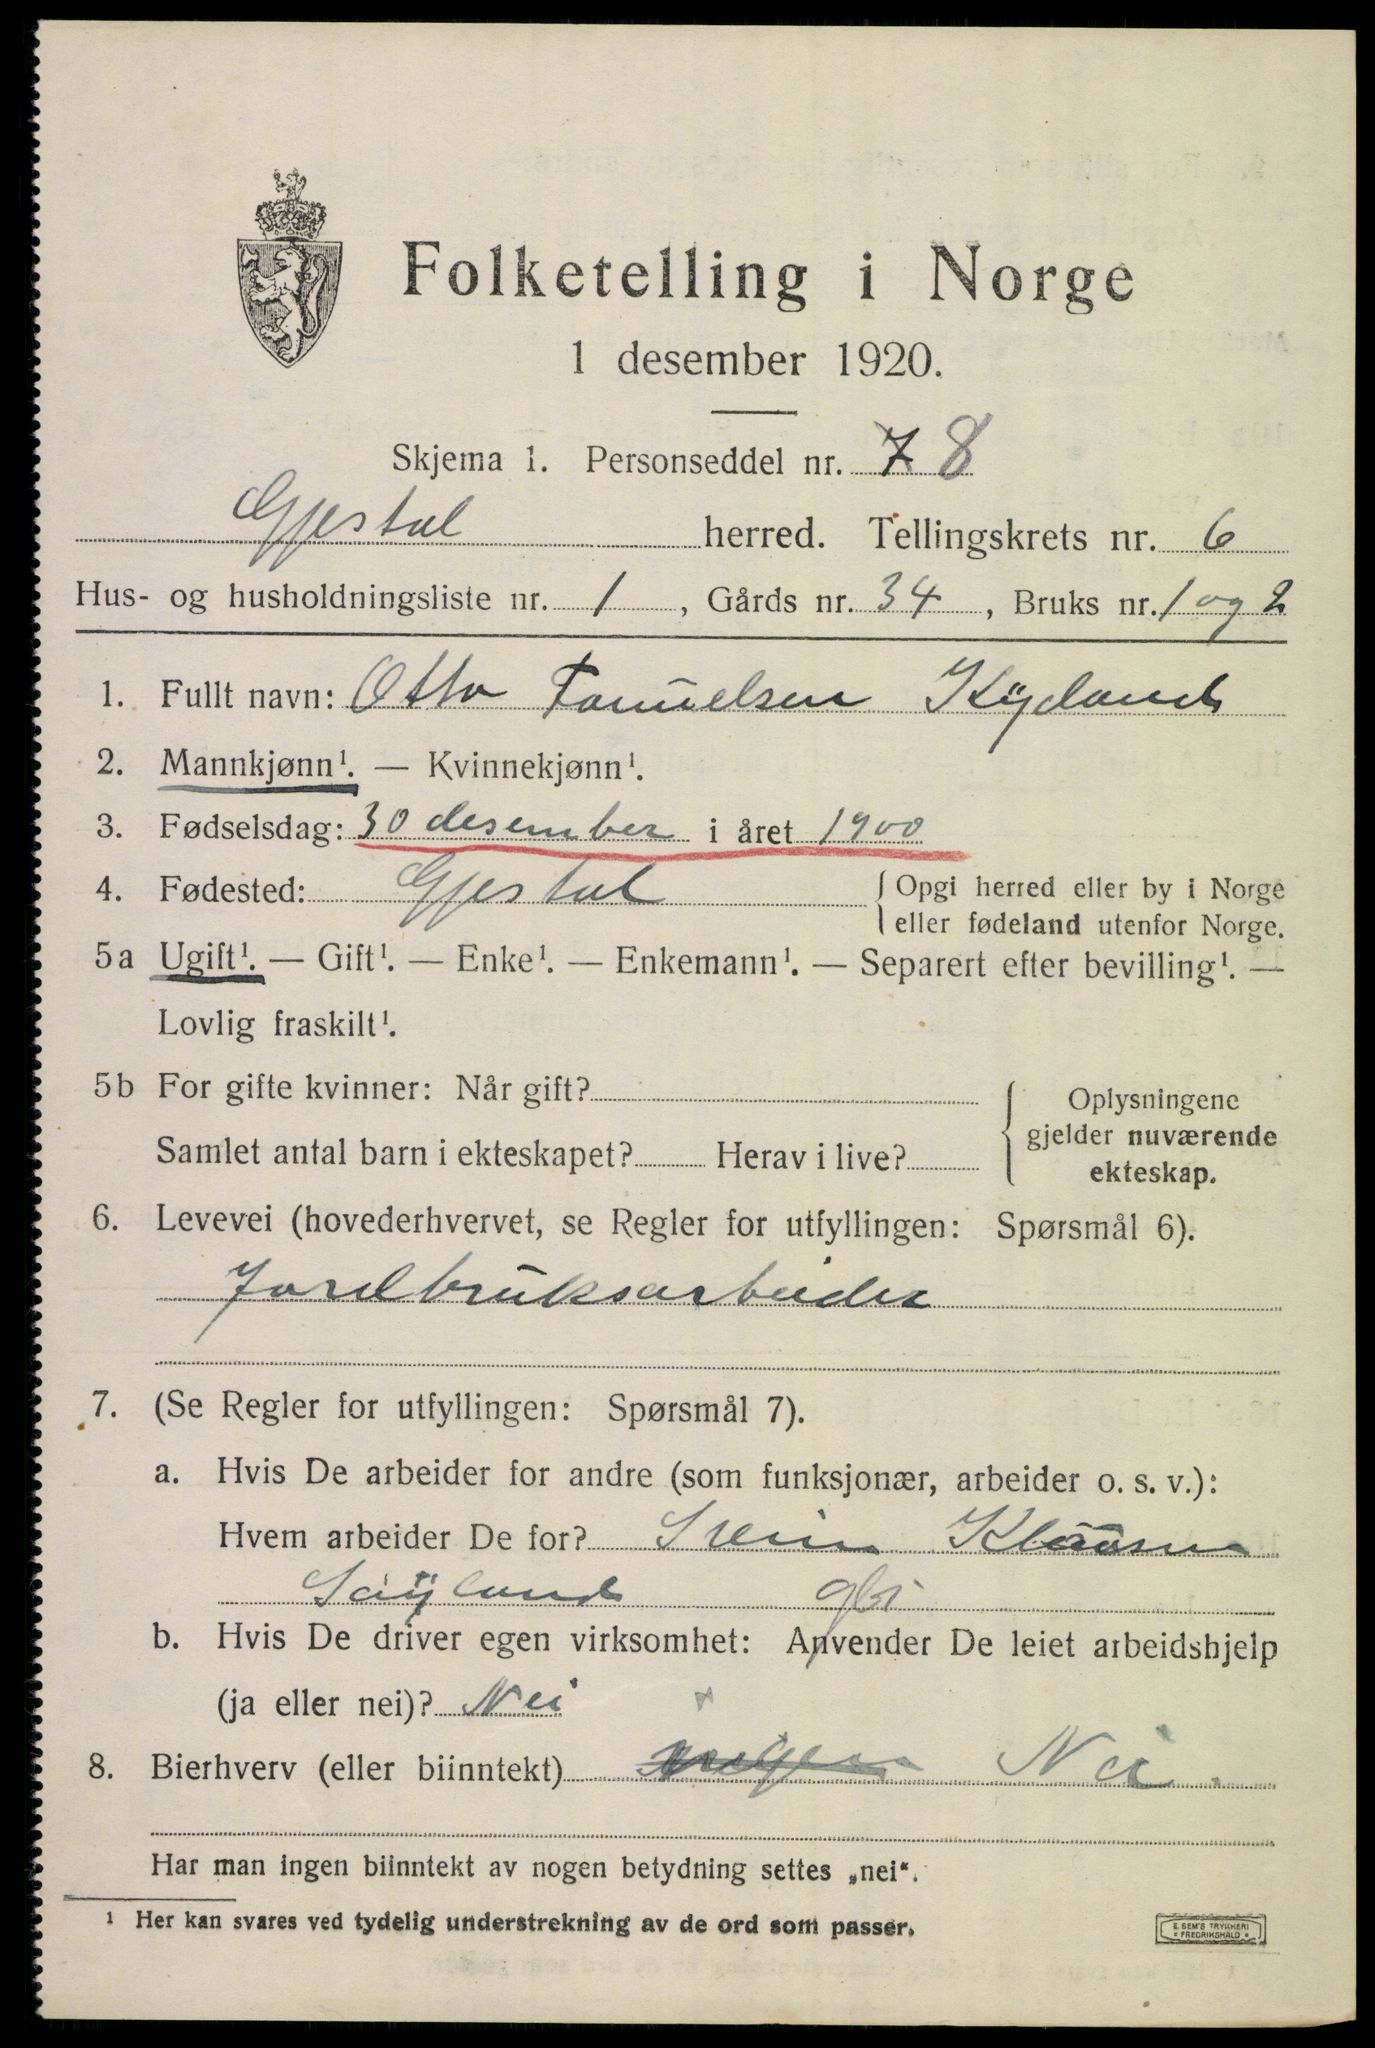 Folketelling i Norge
1 desember 1920.
Skjema 1. Personseddel nr. 7 8
Gjestal herred. Tellingskrets nr. 6
Hus- og husholdningsliste nr. 1, Gårds nr. 34, Bruks nr. 1 og 2
1. Fullt navn: Otto Tonnelsen Kydland
2. Mannkjønn¹. — Kvinnekjønn¹.
3. Fødselsdag: 30 desember i året 1900
4. Fødested: Gjestal { Opgi herred eller by i Norge
eller fødeland utenfor Norge.
5a Ugift¹. — Gift¹. — Enke¹. — Enkemann¹. — Separert efter bevilling¹. —
Lovlig fraskilt¹.
5b For gifte kvinner: Når gift?
Samlet antal barn i ekteskapet? Herav i live?
Oplysningene
gjelder nuværende
ekteskap.
6. Levevei (hovederhvervet, se Regler for utfyllingen: Spørsmål 6).
Jordbruksarbeider
7. (Se Regler for utfyllingen: Spørsmål 7).
a. Hvis De arbeider for andre (som funksjonær, arbeider o. s. v.):
Hvem arbeider De for? Svein Klausen
gbr
b. Hvis De driver egen virksomhet: Anvender De leiet arbeidshjelp
(ja eller nei)? Nei
8. Bierhverv (eller biinntekt) ingen Nei.
Har man ingen biinntekt av nogen betydning settes „nei“.
¹ Her kan svares ved tydelig understrekning av de ord som passer.
E. SEM'S TRYKKERI
FREDRIKSHALD